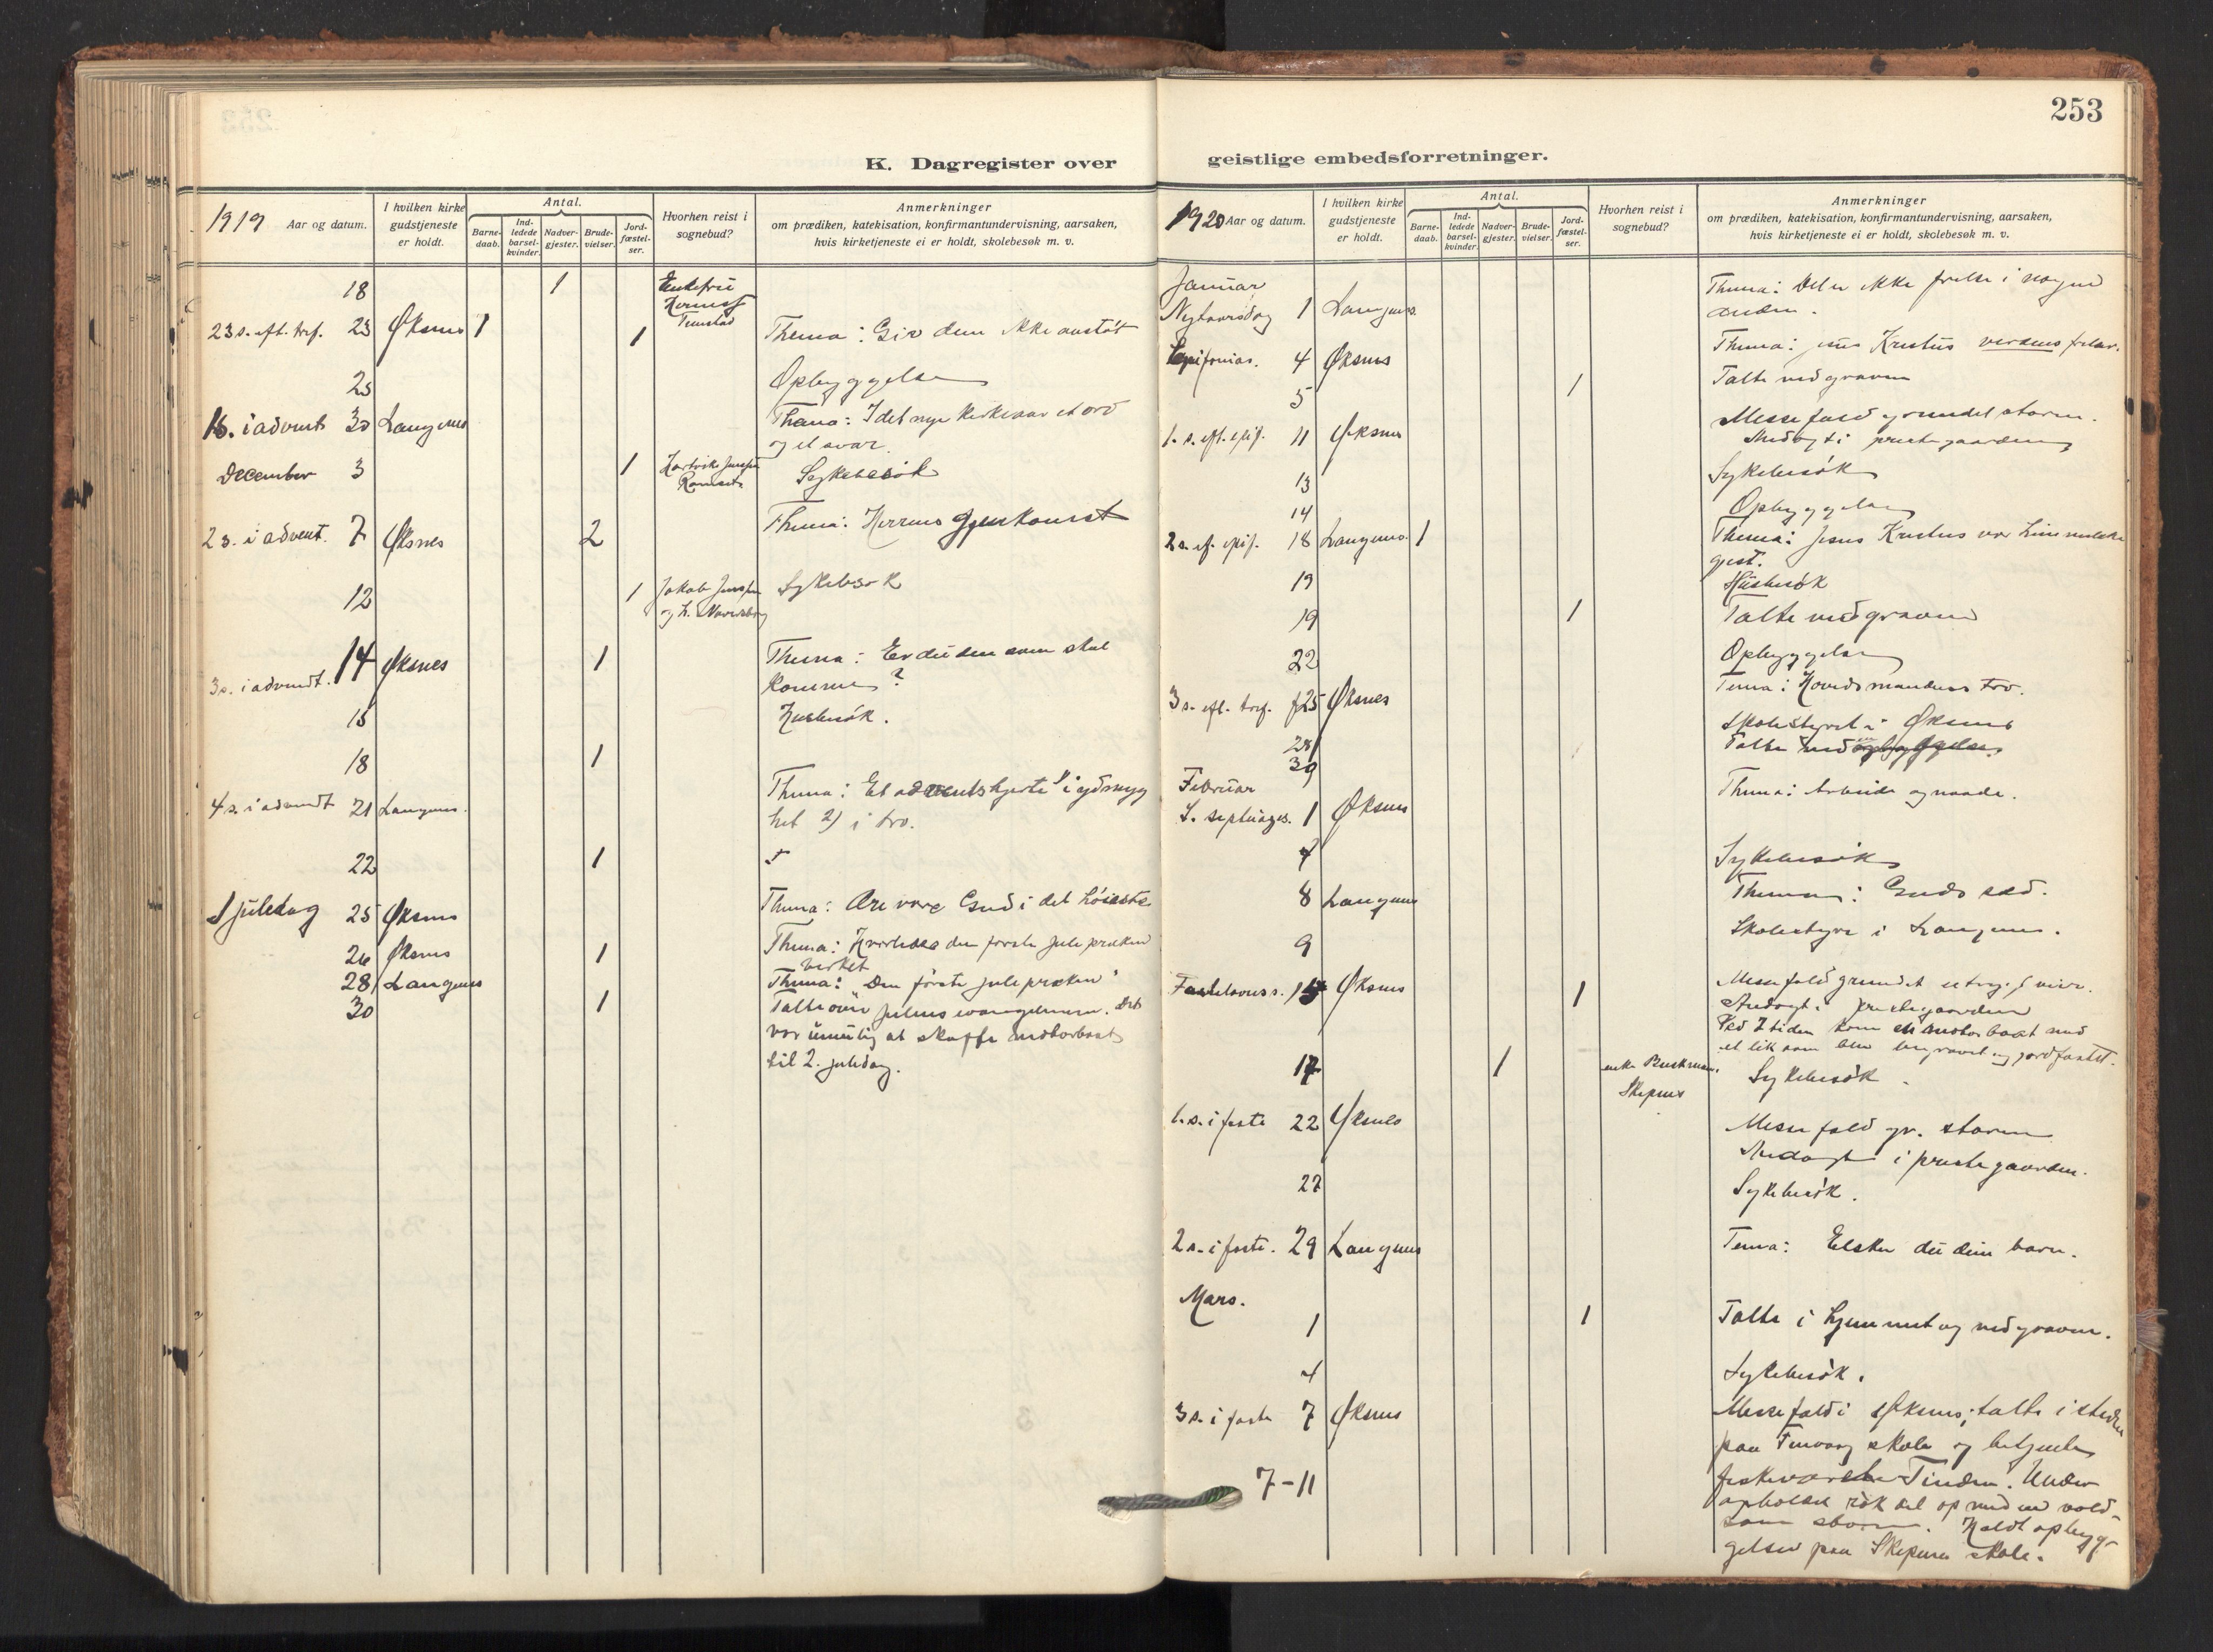 K. Dagregister over
1919 Aar og datum.
I hvilken kirke gudstjeneste er holdt.
Antal.
Barne-daab.
Ind-ledede barsel-kvinder.
Nadver-gjester.
Brude-vielser.
Jord-fæstel-ser.
Hvorhen reist i sognebud?
Anmerkninger
om prædiken, katekisation, konfirmantundervisning, aarsaken,
hvis kirketjeneste ei er holdt, skolebesøk m. v.
18 1
23 s. eft. tref. 23 Øksnes 1 1 Thema: Giv dem ikke anstöt
25 Opbyggelse
i advent 30 Langenes Thema: I det nye kirkeaar et ord
og et svar.
December 3 1 Sykebesök
2 s. i advent. 7 Øksnes 2 Thema: Herrens gjenkomst
12 1 Jakob Sykebesök
3 s. i advendt. 14 Øksnes 1 Thema: Er du den som skal
komme?
15 Husbesök.
18 1
4 s. i advendt 21 Langenes. Thema: Et adventshjerte 1) i ydmyg
het 2) i tro.
22 1
1 juledag 25 Øksnes Thema: Ære være Gud i det höieste
26 Øksnes 1 Thema: Hvorledes den første jule præken
virket
28 Langenes Thema: "Den förste jule præken"
30 1 Talte over julens evangelium. Det
var umulig at skaffe motorbaat
til 2. juledag.
253
geistlige embedsforretninger.
1920 Aar og datum.
I hvilken kirke gudstjeneste er holdt.
Antal.
Barne-daab.
Ind-ledede barsel-kvinder.
Nadver-gjester.
Brude-vielser.
Jord-fæstel-ser.
Hvorhen reist i sognebud?
Anmerkninger
om prædiken, katekisation, konfirmantundervisning, aarsaken,
hvis kirketjeneste ei er holdt, skolebesøk m. v.
Januar
Nytaarsdag 1 Langenes. Thema: Det er ikke frelse i nogen
anden.
Epifanias. 4 Øksnes Thema: Jesus Kristus verdens frelser.
5 1 Talte ved graven
1. s. eft. epif. 11 Øksnes Messefald grundet storm.
Andagt i prestegaarden
13 Sykebesök
14 Opbyggelse
2 s. ef. epif. 18 Langenes. 1 Thema: Jesus Kristus vor himmelske
gjest.
19 Husbesök
19 1 Talte ved graven
22 Opbyggelse
3 s. eft. 25 Øksnes Tema: Hövedsmandens tro.
Skolestyret i Øksnes
Talte ved opbyggelse
30
Februar
S. septuages. 1 Øksnes Thema: Arbeide og naade.
4 Sykebesök
8 Langenes Thema: Guds sæd.
9 Skolestyre i Langenes.
Fastelavns s. 15 Øksnes 1 Messefald grundet
Andagt i prestegaarden
Ved 2 tiden kom en motorbaat med
et lik som blev begravet og jordfæstet.
17 1 enke Skipnes Sykebesök
1. s. i faste 22 Øksnes Messefald gr. storm
Andagt i prestegaarden.
27 Sykebesök.
2 s. i faste. 29 Langenes Tema: Elsker du dine barn.
Mars.
1 1 Talte i hjemmet og ved graven.
4 Sykebesök.
3 s. i faste 7 Øksnes Messefald i Øksnes; talte i steden
paa skole og betjente
7-11 fiskeværet Tinden. Under
opholdet rök det op med en vold-
som storm. Holdt opbyg-
gelser paa Skipnes skole.